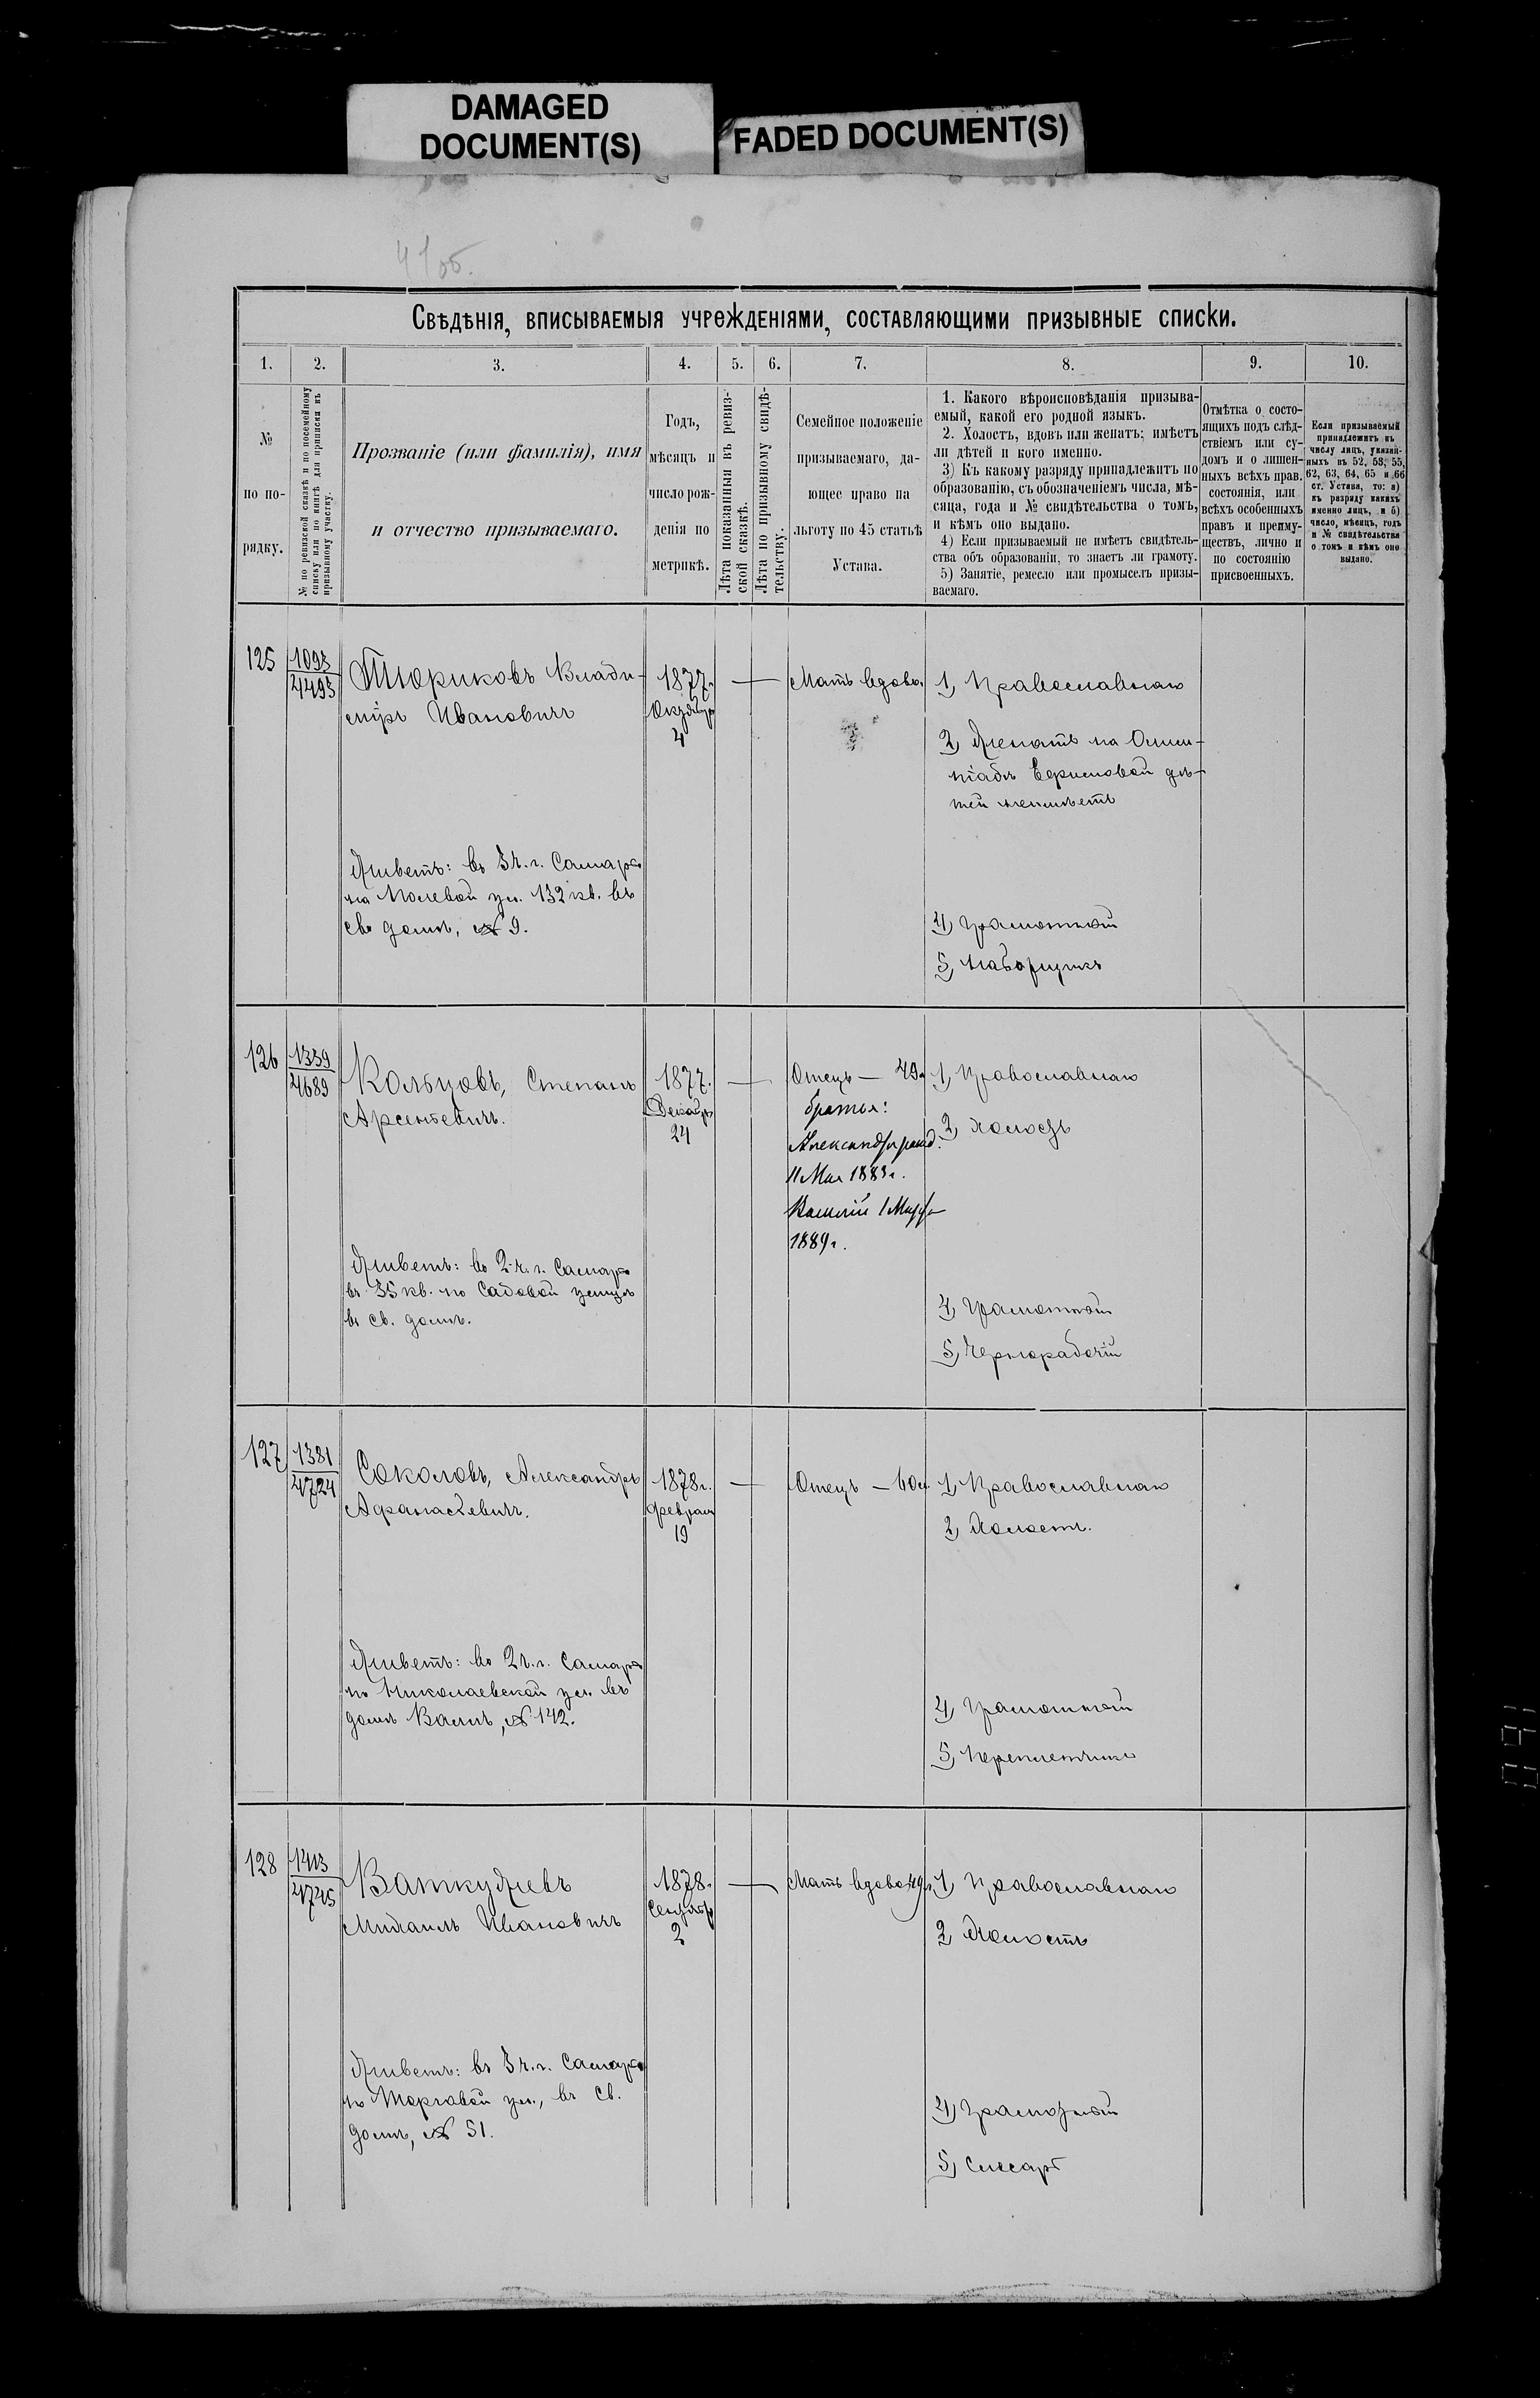 DAMAGED
DOCUMENT(S)
FADED DOCUMENT(S)
41об.
Свѣдѣнія, вписываемыя учрежденіями, составляющими призывные списки.
1.
2.
3.
4.
5.
6.
7.
8.
9.
10.
№
по по-
рядку.
№ по ревизской сказкѣ и по посемейному
списку или по книгѣ для приписки къ
призывному участку.
Прозваніе (или фамилія), имя
и отчество призываемаго.
Годъ,
мѣсяцъ и
число рож-
денія по
метрикѣ.
Лѣта показанныя въ ревиз-
ской сказкѣ.
Лѣта по призывному свидѣ-
тельству.
Семейное положеніе
призываемаго, да-
ющее право на
льготу по 45 статьѣ
Устава.
1. Какого вѣроисповѣданія призыва-
емый, какой его родной языкъ.
2. Холостъ, вдовъ или женатъ; имѣетъ
ли дѣтей и кого именно.
3) Къ какому разряду принадлежитъ по
образованію, съ обозначеніемъ числа, мѣ-
сяца, года и № свидѣтельства о томъ,
и кѣмъ оно выдано.
4) Если призываемый не имѣетъ свидѣтель-
ства объ образованіи, то знаетъ ли грамоту.
5) Занятіе, ремесло или промыселъ призы-
ваемаго.
Отмѣтка о состо-
ящихъ подъ слѣд-
ствіемъ или су-
домъ и о лишен-
ныхъ всѣхъ прав.
состоянія, или
всѣхъ особенныхъ
правъ и преиму-
ществъ, лично и
по состоянію
присвоенныхъ.
Если призываемый
принадлежитъ къ
числу лицъ, указан-
ныхъ въ 52, 53, 55,
62, 63, 64, 65 и 66
ст. Устава, то: а)
къ разряду какихъ
именно лицъ, и б)
число, мѣсяцъ, годъ
и № свидѣтельства
о томъ и кѣмъ оно
выдано.
125
1093
4493
Тюриковъ Влади-
міръ Ивановичъ
1877г.
Октября
4
Мать вдова,
1, Православнаго
2, Женатъ на Олим-
піадѣ Ефимовой дѣ-
тей неимѣетъ
Живетъ: въ 3 ч. г. Самары
на Полевой ул. 132 кв. въ
св. домѣ, № 9.
4, Грамотный
5, Наборщикъ
126
1339
4689
Кольцовъ, Степанъ
Арсентьевичъ.
1877г.
Декабря
24
Отецъ — 49л
братья:
Александръ рожд.
11 Мая 1883г.
Василій 1 Марта
1889г.
1, Православнаго
2, Холостъ
Живетъ: во 2 ч. г. Самары
въ 35 кв. по Садовой улицѣ
въ св. домѣ.
4, Грамотный
5, Чернорабочій
127
1381
4724
Соколовъ, Александръ
Афанасьевичъ.
1878г.
Февраля
19
Отецъ — 60л
1, Православнаго
2, Холостъ.
Живетъ: во 2 ч. г. Самары
по Николаевской ул. въ
домѣ № 142.
4, Грамотный
5, Переплетчикъ
128
1413
4745
Михаилъ Ивановичъ
1878г.
Сентября
2
Мать вдова 49л
1, Православнаго
2, Холостъ
Живетъ: въ 3 ч. г. Самары
по Торговой ул., въ св.
домѣ, № 51.
4, Грамотный
5, Слесарь